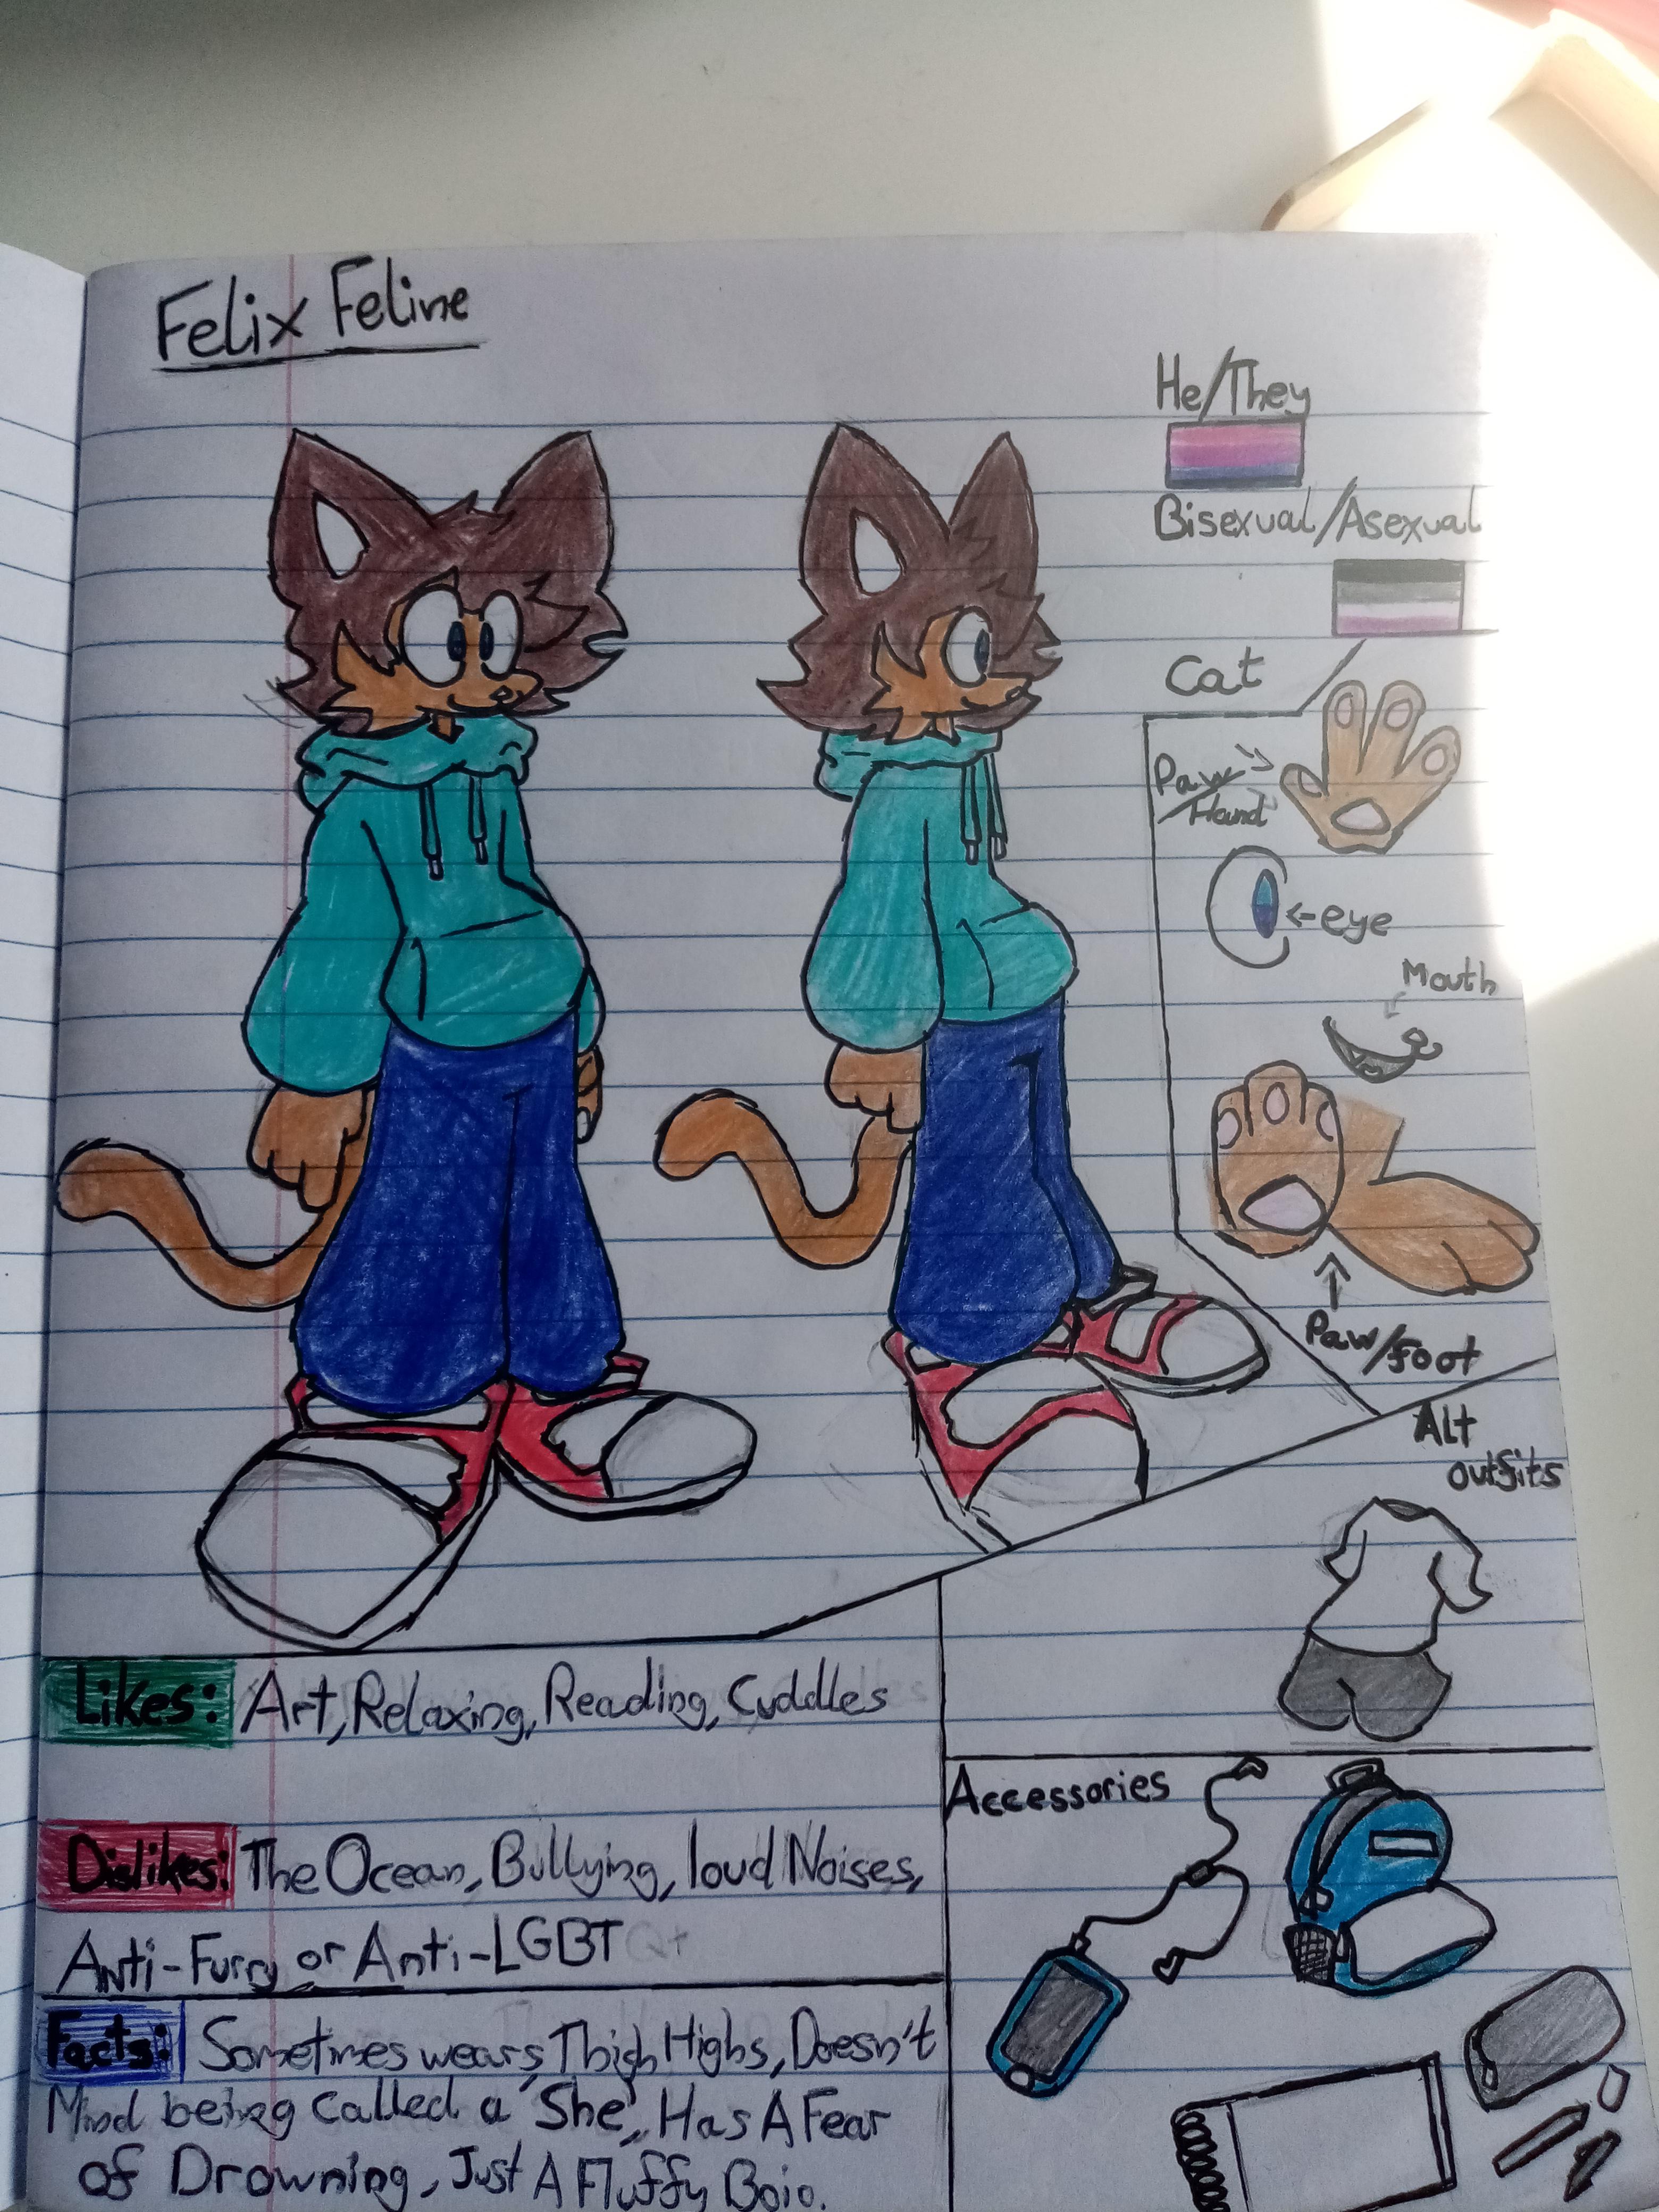 Felix Feline
He/They
Bisexual/Asexual
Cat
Paw/
Hand
eye
Mouth
Paw/foot
Alt
outfits
Likes: Art, Relaxing, Reading, Cuddles
Dislikes: The Ocean, Bullying, loud Noises,
Anti-Furry or Anti-LGBTQ+
Facts: Sometimes wears Thigh Highs, Doesn't
Mind being called a 'She', Has A Fear
of Drowning, Just A Fluffy Boio.
Accessories